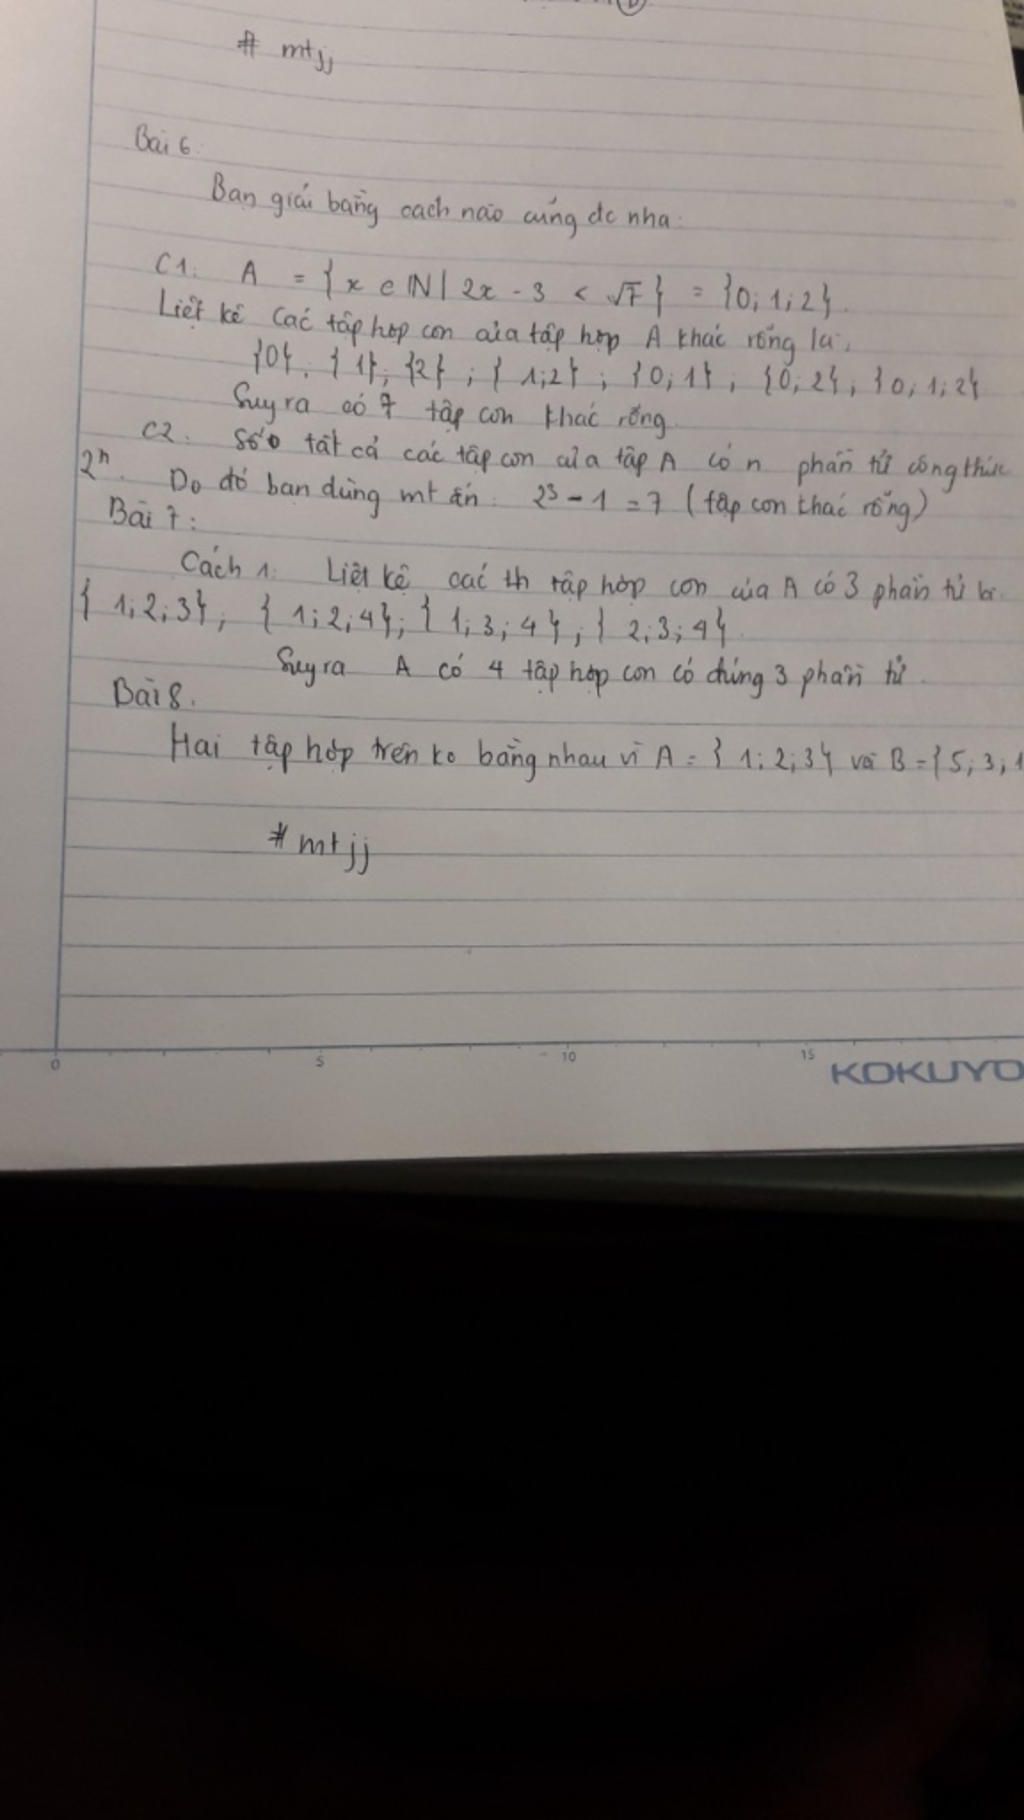 # mtjj
Bài 6.
Bạn giải bằng cách nào cũng đc nha:
C1: A = { x ∈ ℕ | 2x - 3 < √7 } = {0; 1; 2}.
Liệt kê các tập hợp con của tập hợp A khác rỗng là:
{0}, {1}, {2}; {1;2}; {0;1}; {0;2}; {0;1;2}
Suy ra có 7 tập con khác rỗng
C2. Số tất cả các tập con của tập A có n phần tử công thức
2ⁿ. Do đó bạn dùng mt ấn: 2³ - 1 = 7 (tập con khác rỗng)
Bài 7:
Cách 1: Liệt kê các th tập hợp con của A có 3 phần tử là:
{1;2;3}; {1;2;4}; {1;3;4}; {2;3;4}.
Suy ra A có 4 tập hợp con có đúng 3 phần tử.
Bài 8.
Hai tập hợp trên ko bằng nhau vì A = {1;2;3} và B = {5;3;1
# mtjj
0 5 10 15
KOKUYO